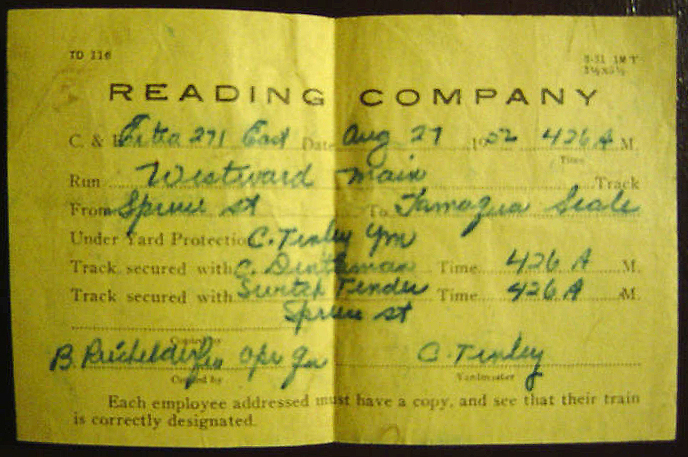 TD 116 8-51 1M T
READING COMPANY
C. & E. Extra 271 East Date Aug 27 1952 426 A M.
Time
Run Westward main Track
From Spruce st To Tamaqua Scale
Under Yard Protection C. Tinley Ym
Track secured with C. Time 426 A M.
Track secured with Tender Time 426 A M.
Spruce st
B. opr C. Tinley
Copied by Yardmaster
Each employee addressed must have a copy, and see that their train
is correctly designated.